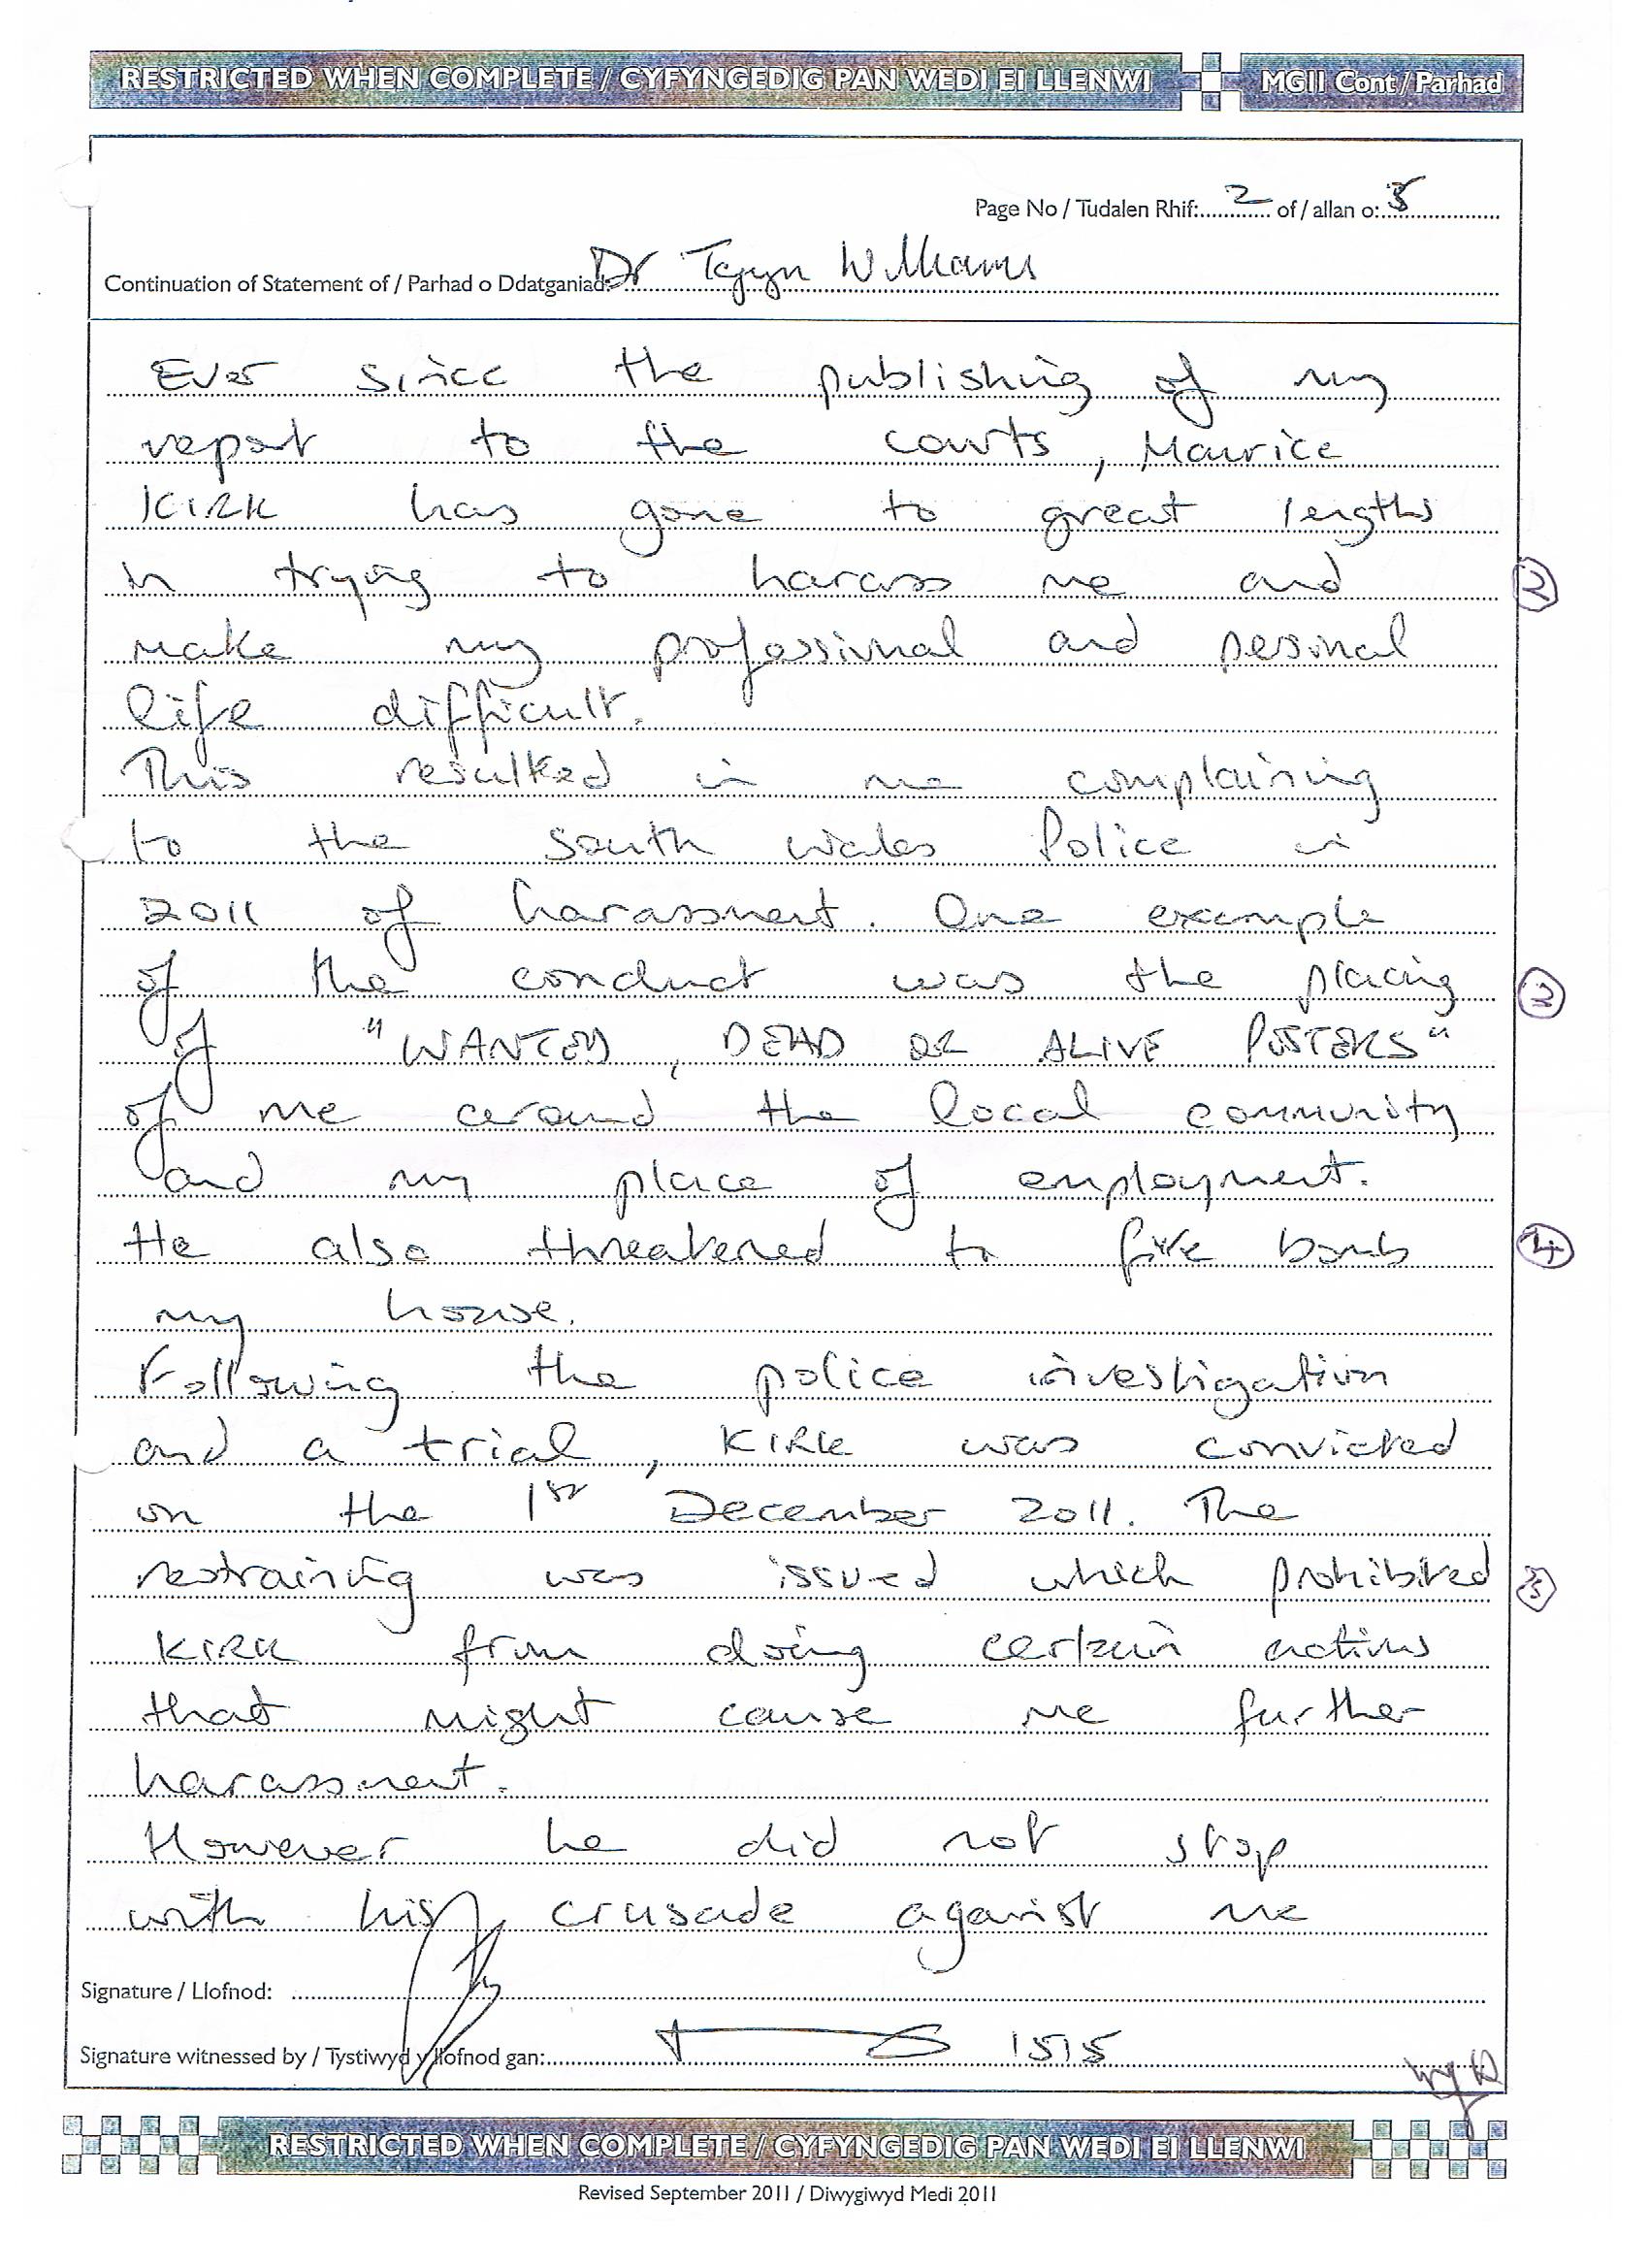 RESTRICTED WHEN COMPLETE / CYFYNGEDIG PAN WEDI EI LLENWI MG11 Cont / Parhad
Page No / Tudalen Rhif: 2 of / allan o: 5
Continuation of Statement of / Parhad o Ddatganiad: Dr Tegwyn Williams
Ever since the publishing of my
report to the courts, Maurice
KIRK has gone to great lengths
in trying to harass me and
2
make my professional and pesonal
life difficult.
This resulted in me complaining
to the South Wales Police in
2011 of harassment. One example
of the conduct was the placing
3
of "WANTED, DEAD OR ALIVE POSTERS"
of me around the local community
and my place of employment.
He also threatened to fire bomb
4
my house.
Following the police investigation
and a trial, KIRK was convicted
on the 1st December 2011. The
restraining was issued which prohibited
5
KIRK from doing certain actions
that might cause me further
harassment.
However he did not stop
with his crusade against me
Signature / Llofnod:
Signature witnessed by / Tystiwyd y llofnod gan: 1515
RESTRICTED WHEN COMPLETE / CYFYNGEDIG PAN WEDI EI LLENWI
Revised September 2011 / Diwygiwyd Medi 2011